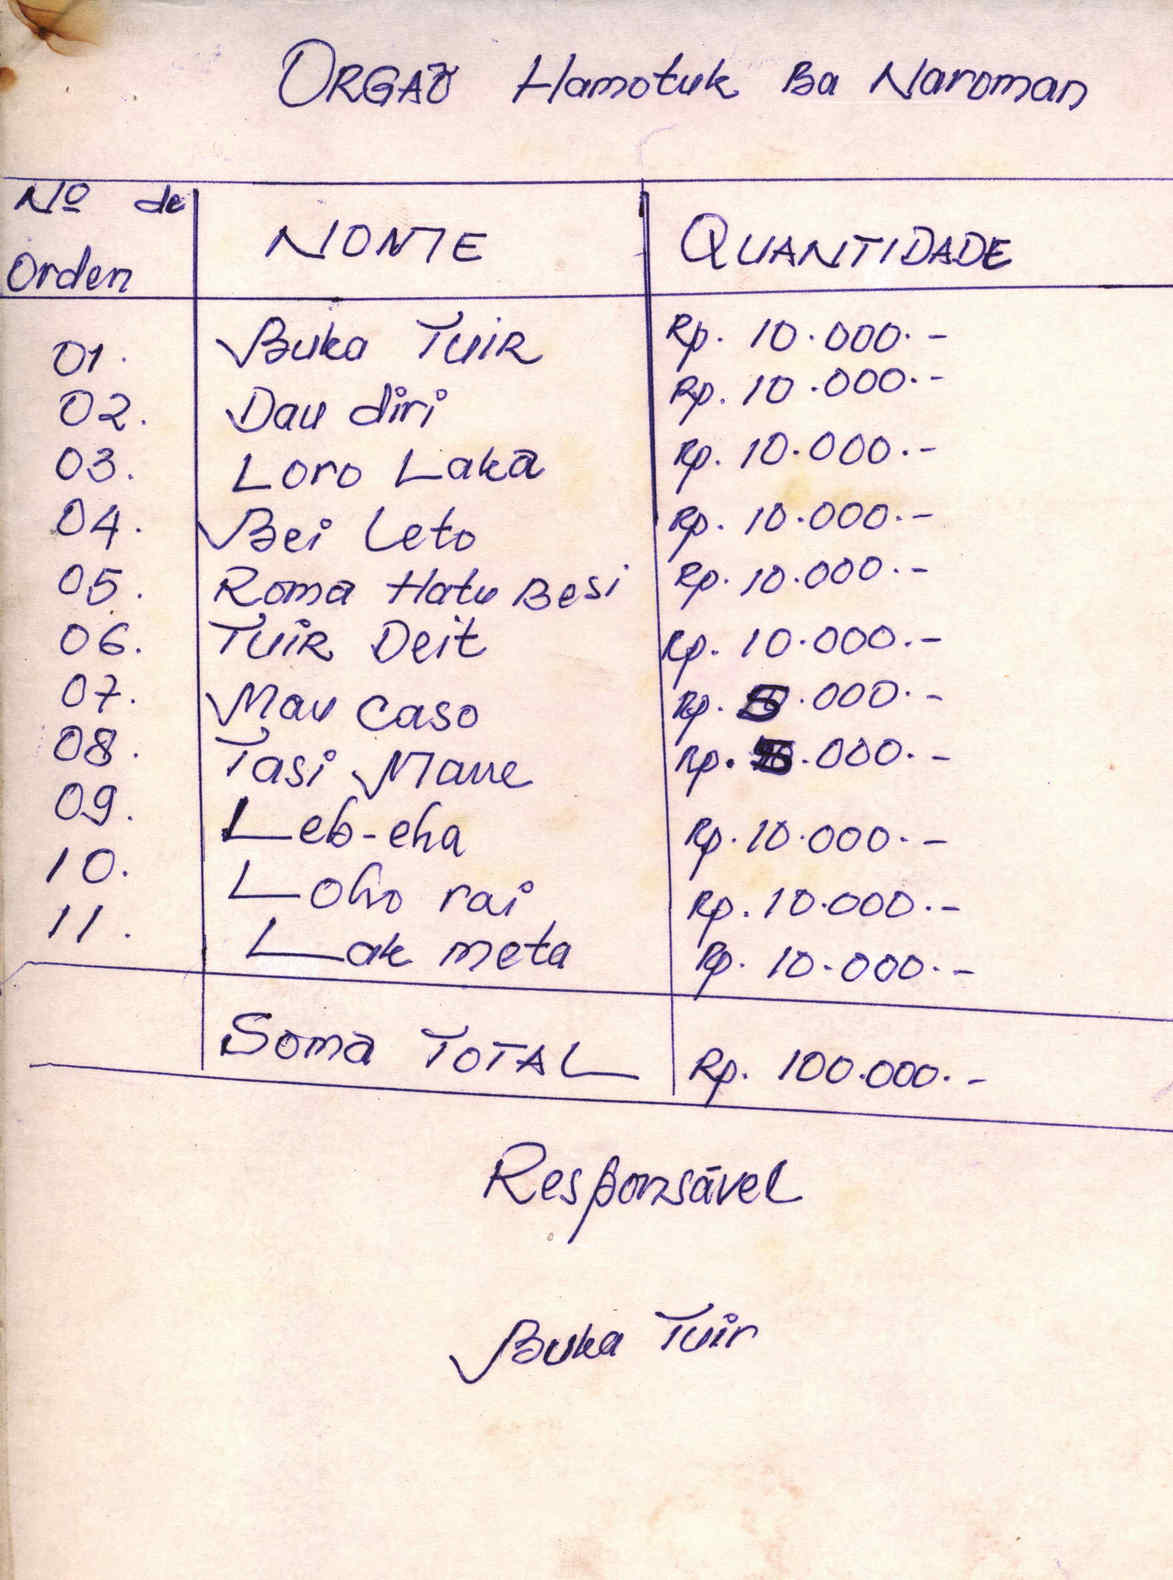 ORGAÕ Hamotuk Ba Naroman
Nº de Orden NOME QUANTIDADE
01. Buka Tuir Rp. 10.000.-
02. Dau diri Rp. 10.000.-
03. Loro Laka Rp. 10.000.-
04. Bei Leto Rp. 10.000.-
05. Roma Hatu Besi Rp. 10.000.-
06. Tuir Deit Rp. 10.000.-
07. Mau Caso Rp. 5.000.-
08. Tasi Mane Rp. 5.000.-
09. Leb-eha Rp. 10.000.-
10. Loho rai Rp. 10.000.-
11. Lak meta Rp. 10.000.-
Soma TOTAL Rp. 100.000.-
Responsável
Buka Tuir